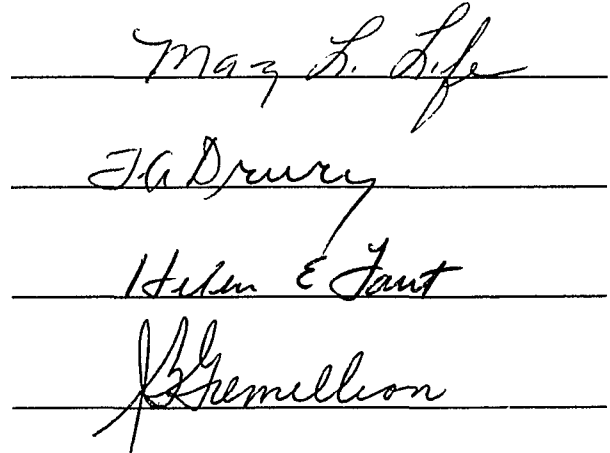 Mary L. Life
F A Drury
Helen E Fant
JB Gremillion